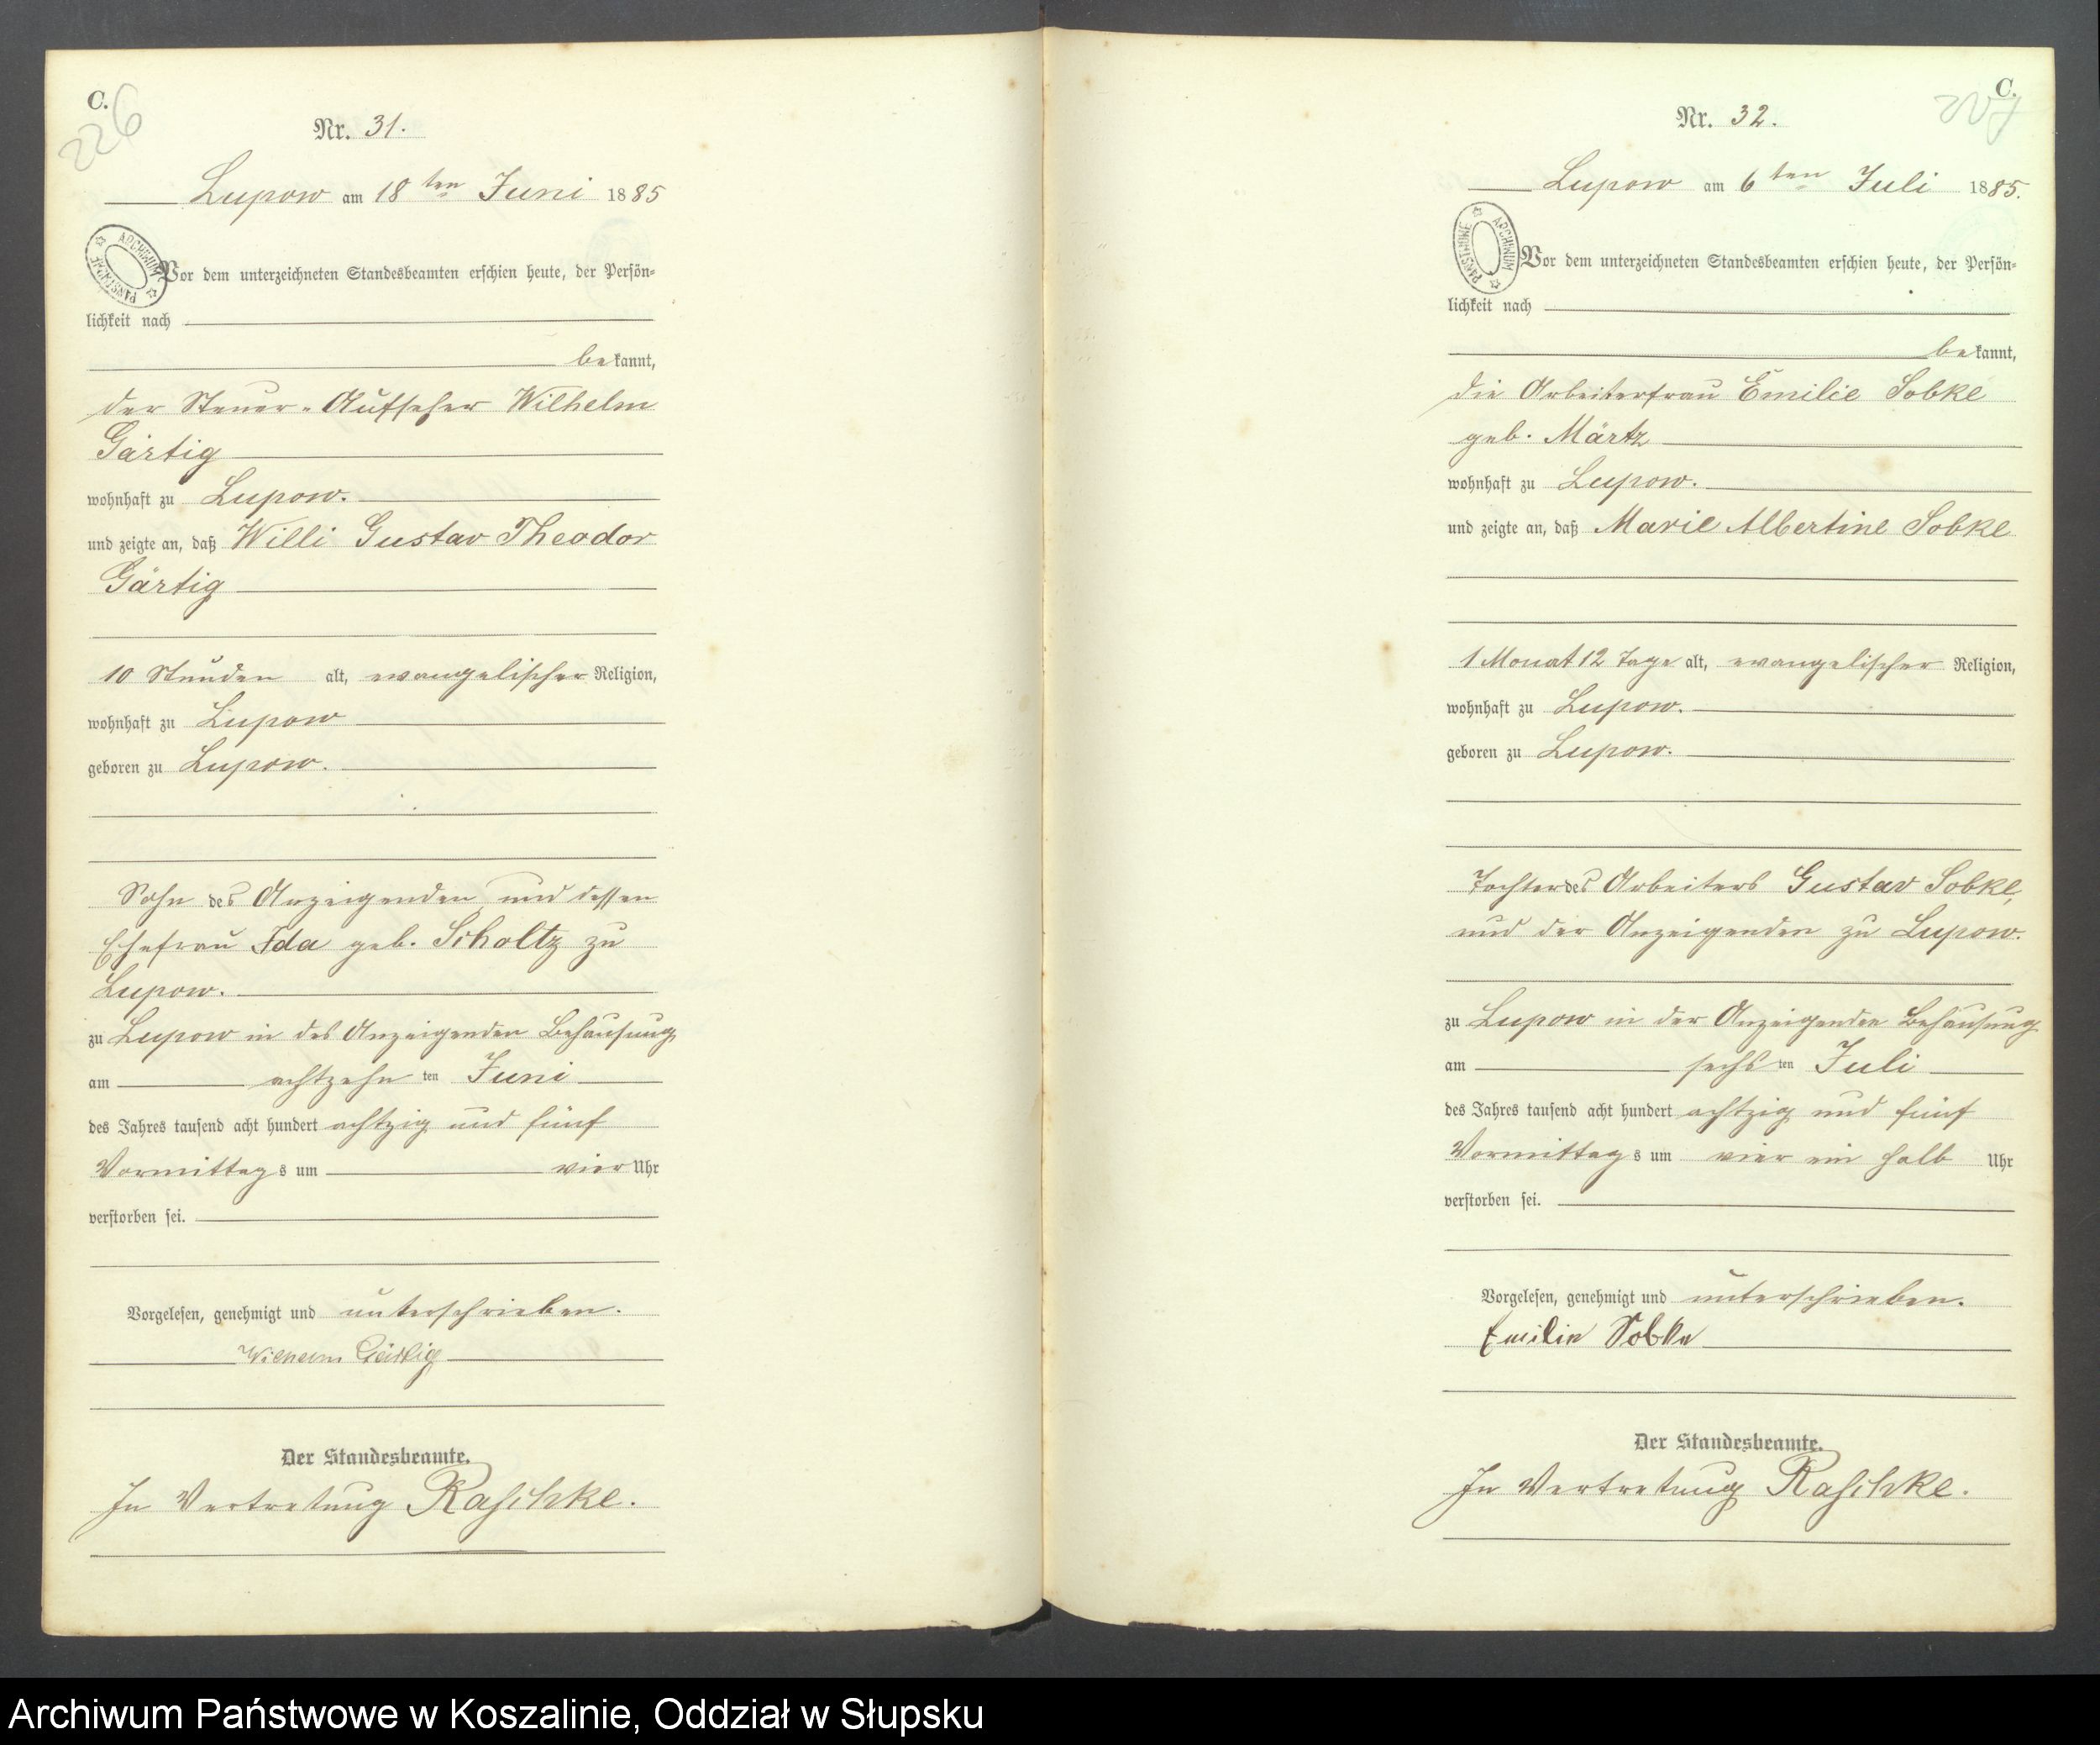 C.
226
Nr. 31.
Lupow am 18ten Juni 1885
ARCHIWUM PAŃSTWOWE
Vor dem unterzeichneten Standesbeamten erschien heute, der Persön=
lichkeit nach
bekannt,
der Steuer-Aufseher Wilhelm
Gärtig
wohnhaft zu Lupow.
und zeigte an, daß Willi Gustav Theodor
Gärtig
10 Stunden alt, evangelischer Religion,
wohnhaft zu Lupow
geboren zu Lupow.
Sohn des Anzeigenden und dessen
Ehefrau Ida geb. Scholtz zu
Lupow.
zu Lupow in des Anzeigenden Behausung
am achtzehn ten Juni
des Jahres tausend acht hundert achtzig und fünf
Vormittags um vier Uhr
verstorben sei.
Vorgelesen, genehmigt und unterschrieben.
Wilhelm Gärtig
Der Standesbeamte.
In Vertretung Raschke.
C.
Nr. 32.
Lupow am 6ten Juli 1885.
ARCHIWUM PAŃSTWOWE
Vor dem unterzeichneten Standesbeamten erschien heute, der Persön=
lichkeit nach
bekannt,
die Arbeiterfrau Emilie Sobke
geb. Märtz
wohnhaft zu Lupow.
und zeigte an, daß Marie Albertine Sobke
1 Monat 12 Tage alt, evangelischer Religion,
wohnhaft zu Lupow.
geboren zu Lupow.
Tochter des Arbeiters Gustav Sobke,
und der Anzeigenden zu Lupow.
zu Lupow in der Anzeigenden Behausung
am sechs ten Juli
des Jahres tausend acht hundert achtzig und fünf
Vormittags um vier ein halb Uhr
verstorben sei.
Vorgelesen, genehmigt und unterschrieben.
Emilie Sobke
Der Standesbeamte.
In Vertretung Raschke.
Archiwum Państwowe w Koszalinie, Oddział w Słupsku